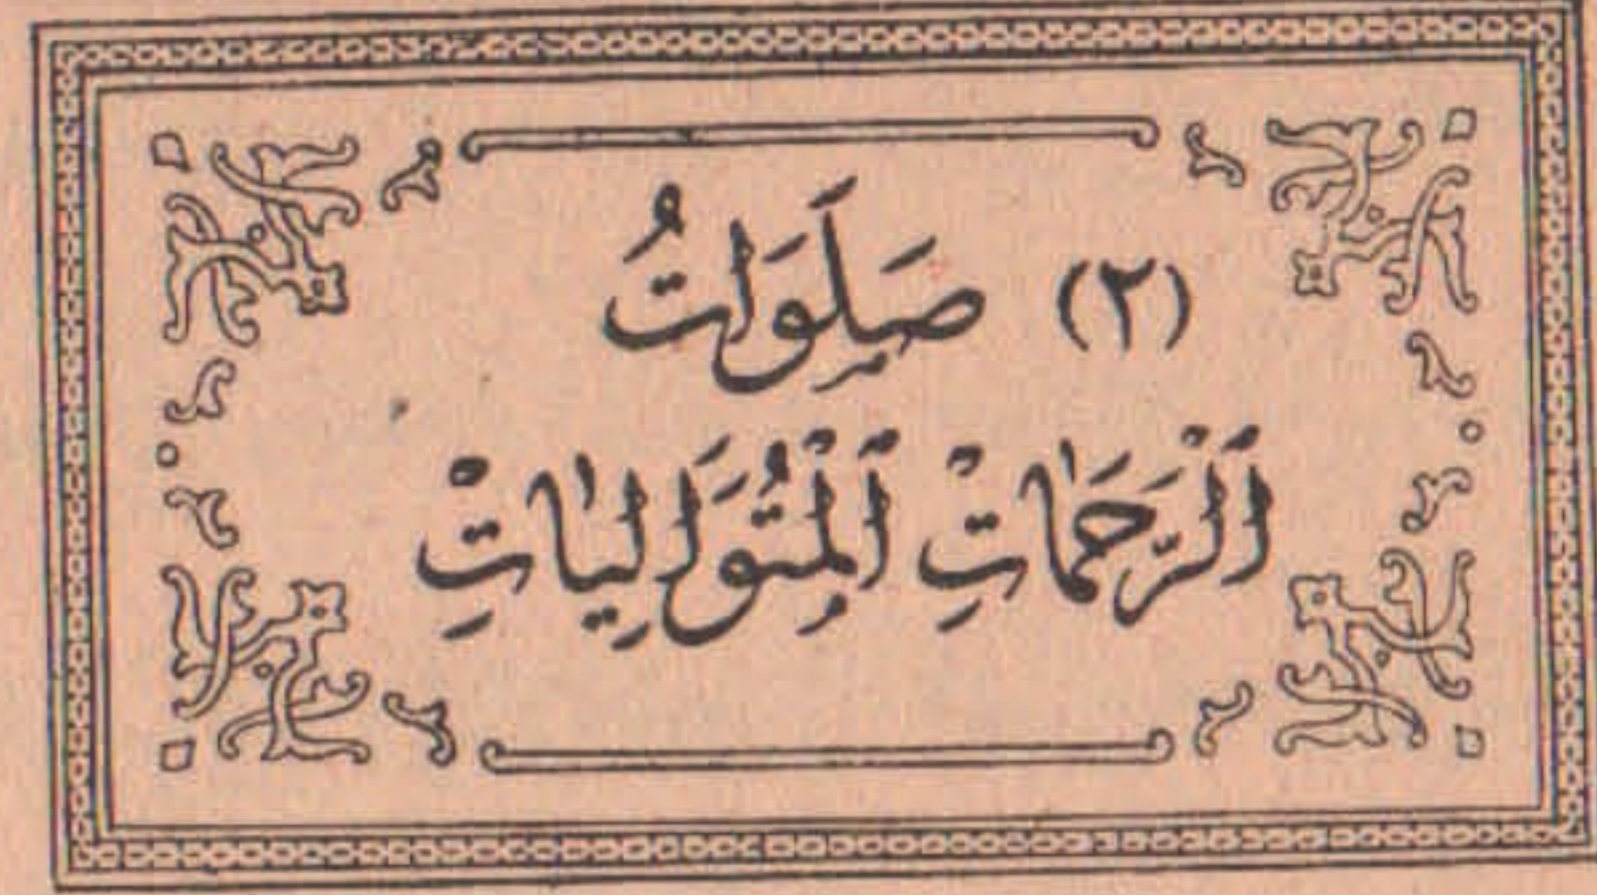 (٢) صَلَوَاتُ
ٱلْرَّحَمَاتِ ٱلْمُتَوَالِيَاتِ